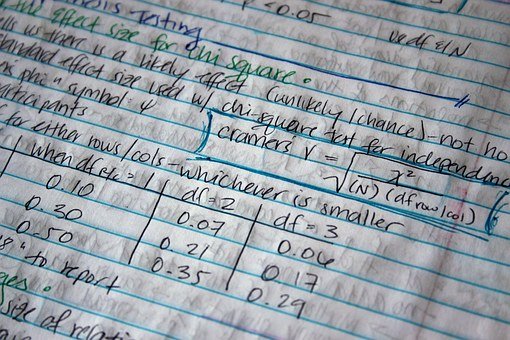 < 0.05
w/ df & N
esis Testing
the effect size for chi square.
lls us there is a likely effect (unlikely / chance) - not ho
tandard effect size used w/ chi-square test for independence
phi" symbol:
articipants
cramers V = √ χ² / (N) (df row/col)
for either rows/cols - whichever is smaller
when df r/c = 1 df = 2 df = 3
0.10 0.07 0.06
0.30 0.21 0.17
0.50 0.35 0.29
" to report
ges.
size of relati